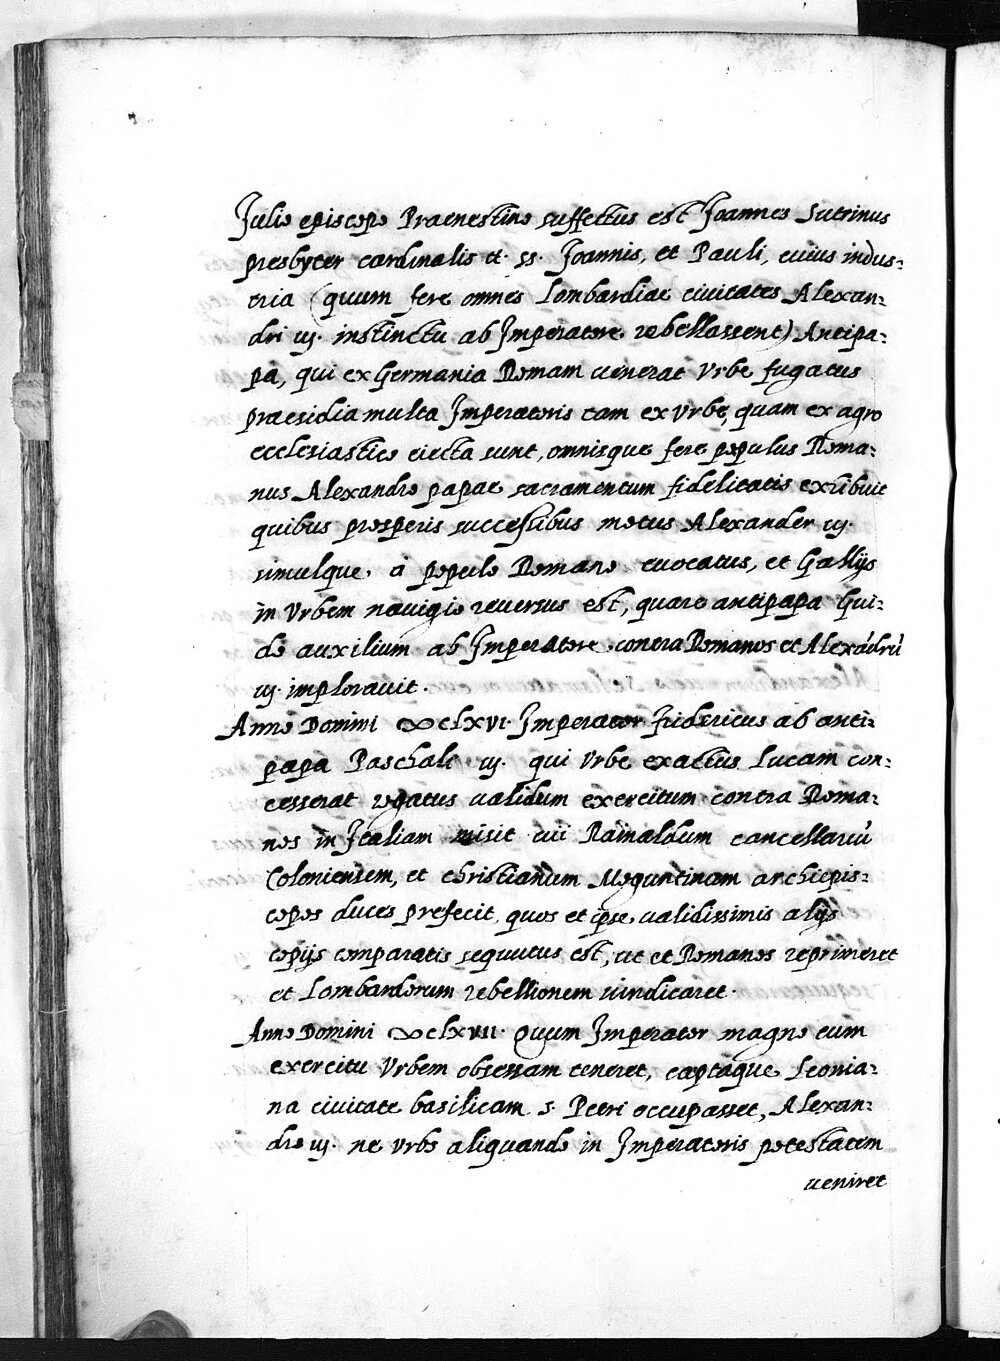 Julio episcopo Praenestino suffectus est Joannes Sutrinus
presbyter cardinalis tt. ss. Joannis, et Pauli, cuius indus-
tria (quum fere omnes Lombardiae civitates Alexan-
dri iij. instinctu ab Imperatore rebellassent) Antipa-
pa, qui ex Germania Romam venerat Vrbe fugatus
praesidia multa Imperatoris tam ex Vrbe, quam ex agro
ecclesiastico eiecta sunt, omnisque fere populus Roma-
nus Alexandro papae sacramentum fidelitatis exibuit
quibus prosperis successibus motus Alexander iij.
simulque à populo Romano evocatus, et Gallijs
in Vrbem navigio reversus est, quare antipapa Gui-
do auxilium ab Imperatore contra Romanos et Alexãdrũ
iij. imploravit.
Anno Domini ∞clxvi. Imperator Fridericus ab anti-
papa Paschali iij. qui Vrbe exactus Lucam con-
cesserat rogatus validum exercitum contra Roma-
nos in Italiam misit cui Rainaldum cancellariũ
Coloniensem, et christianum Moguntinam archiepis-
copos duces prefecit, quos et ipse validissimis alijs
copijs comparatis sequutus est, ut et Romanos reprimeret
et Lombardorum rebellionem vindicaret.
Anno Domini ∞clxvii. quum Imperator magno cum
exercitu Vrbem obsessam teneret, captaque Leonia-
na civitate basilicam s. Petri occupasset, Alexan-
dro iij. ne Vrbs aliquando in Imperatoris potestatem
veniret